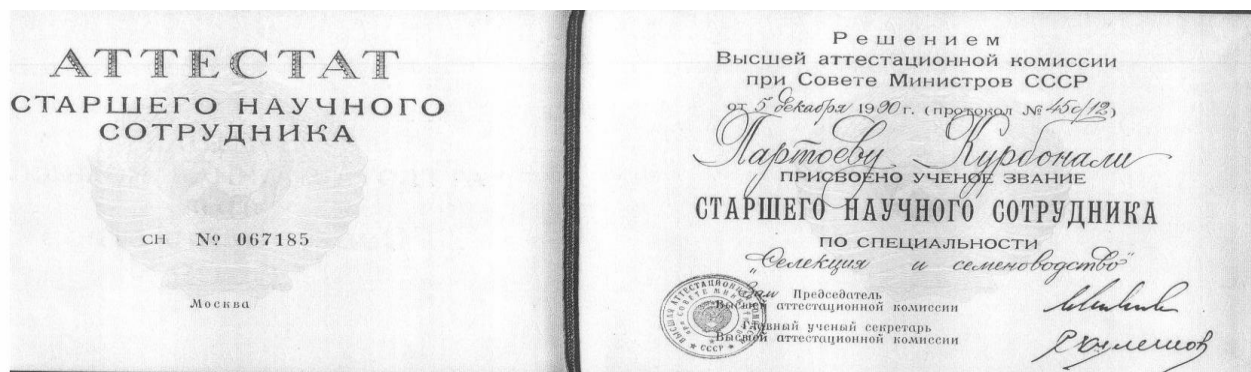 АТТЕСТАТ
СТАРШЕГО НАУЧНОГО
СОТРУДНИКА
СН № 067185
Москва
Решением
Высшей аттестационной комиссии
при Совете Министров СССР
от 5 декабря 1990 г. (протокол № 45с/12)
Партоеву Курбонали
ПРИСВОЕНО УЧЕНОЕ ЗВАНИЕ
СТАРШЕГО НАУЧНОГО СОТРУДНИКА
ПО СПЕЦИАЛЬНОСТИ
„Селекция и семеноводство"
Зам Председатель
Высшей аттестационной комиссии
Главный ученый секретарь
Высшей аттестационной комиссии
ВЫСШАЯ АТТЕСТАЦИОННАЯ КОМИССИЯ
при СОВЕТЕ МИНИСТРОВ
СССР